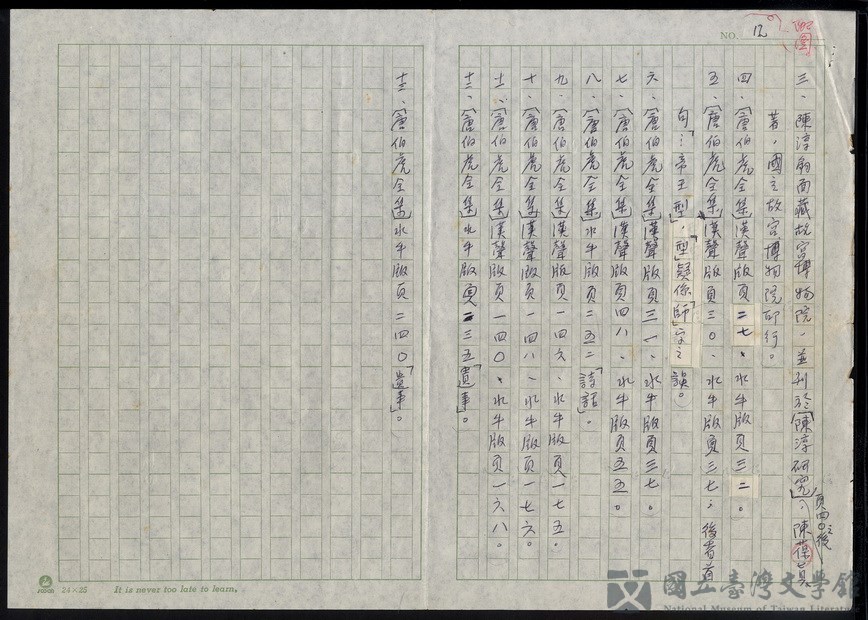 NO. 12
配圖
三、陳淳翰墨藏故宮博物院,並列於「陳淳研究」,陳葆真
頁四〇之後
著,國立故宮博物院印行。
四、「唐伯虎全集」漢聲版頁二七、水牛版頁三二。
五、「唐伯虎全集」漢聲版頁三〇、水牛版頁三七;後者首
句「…帝王型」,「型」疑係「師」字之誤。
六、「唐伯虎全集」漢聲版頁三一、水牛版頁三七。
七、「唐伯虎全集」漢聲版頁四八、水牛版頁五五。
八、「唐伯虎全集」水牛版頁二五二「詩話」。
九、「唐伯虎全集」漢聲版頁一四六、水牛版頁一七五。
十、「唐伯虎全集」漢聲版頁一四八、水牛版頁一七六。
十一、「唐伯虎全集」漢聲版頁一四〇、水牛版頁一六八。
十二、「唐伯虎全集」水牛版頁二三五「遺事」。
十三、「唐伯虎全集」水牛版頁二四〇「遺事」。
24×25 It is never too late to learn.
國立臺灣文學館
National Museum of Taiwan Literature